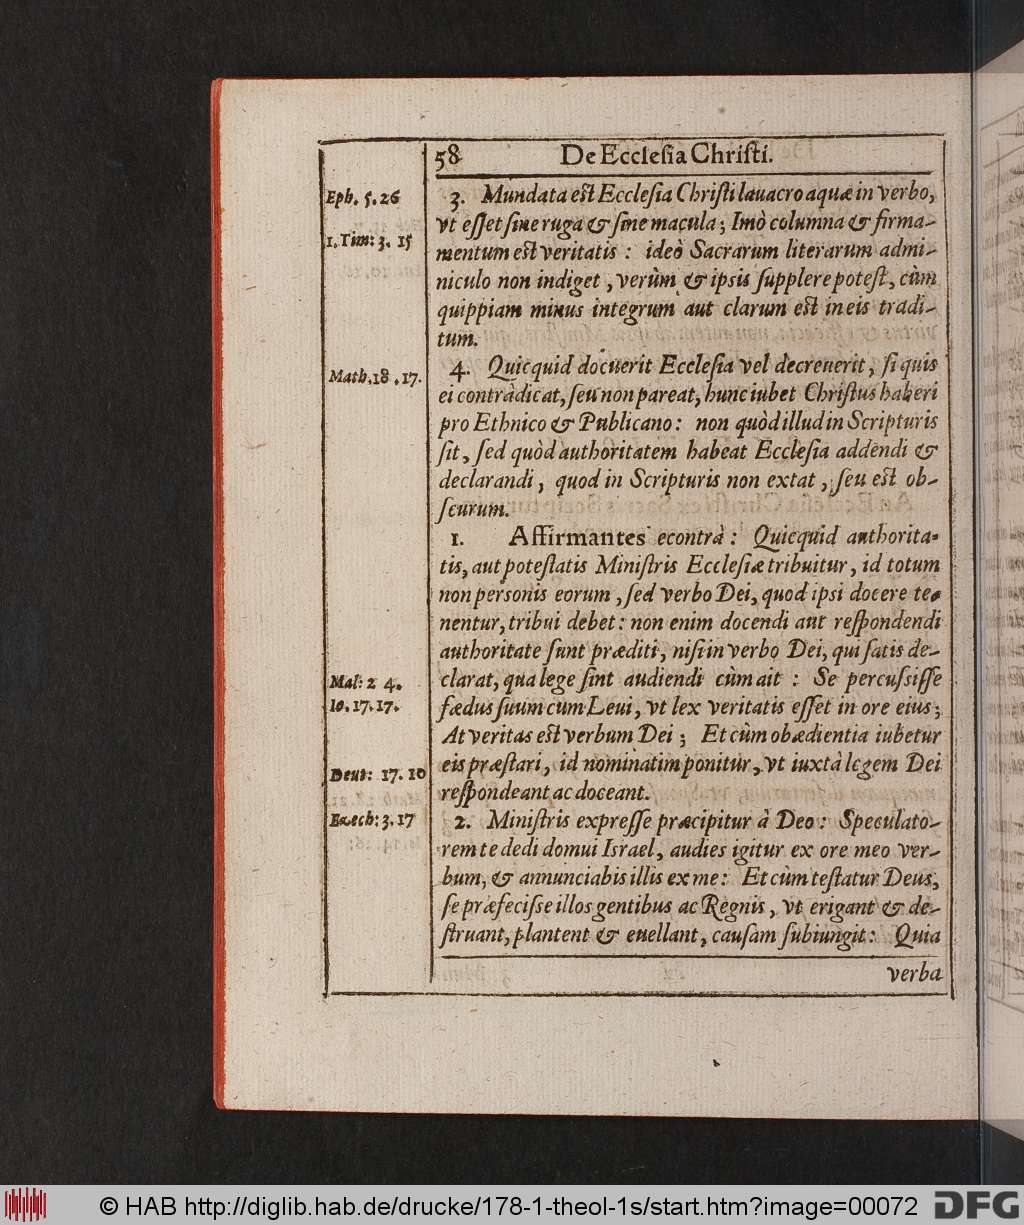 58 De Ecclesia Christi.
Eph. 5. 26
3. Mundata est Ecclesia Christi lauacro aquæ in verbo,
vt esset sine ruga & sine macula; Imò columna & firma-
1. Tim: 3. 15
mentum est veritatis : ideò Sacrarum literarum admi-
niculo non indiget, verùm & ipsis supplere potest, cùm
quippiam minus integrum aut clarum est in eis tradi-
tum.
Math. 18 . 17.
4. Quicquid docuerit Ecclesia vel decreuerit, si quis
ei contràdicat, seu non pareat, hunc iubet Christus haberi
pro Ethnico & Publicano: non quòd illud in Scripturis
sit, sed quòd authoritatem habeat Ecclesia addendi &
declarandi, quod in Scripturis non extat, seu est ob-
scurum.
1. Affirmantes econtrà: Quicquid authorita-
tis, aut potestatis Ministris Ecclesiæ tribuitur, id totum
non personis eorum, sed verbo Dei, quod ipsi docere te-
nentur, tribui debet: non enim docendi aut respondendi
authoritate sunt præditi, nisi in verbo Dei, qui satis de-
Mal: 2 4.
clarat, qua lege sint audiendi cùm ait : Se percussisse
Io. 17. 17.
fædus suum cum Leui, vt lex veritatis esset in ore eius;
At veritas est verbum Dei; Et cùm obædientia iubetur
Deut: 17. 10
eis præstari, id nominatim ponitur, vt iuxtà legem Dei
respondeant ac doceant.
Ezech: 3. 17
2. Ministris expresse præcipitur à Deo: Speculato-
rem te dedi domui Israel, audies igitur ex ore meo ver-
bum, & annunciabis illis ex me: Et cùm testatur Deus,
se præfecisse illos gentibus ac Regnis, vt erigant & de-
struant, plantent & euellant, causam subiungit: Quia
verba
© HAB http://diglib.hab.de/drucke/178-1-theol-1s/start.htm?image=00072 DFG